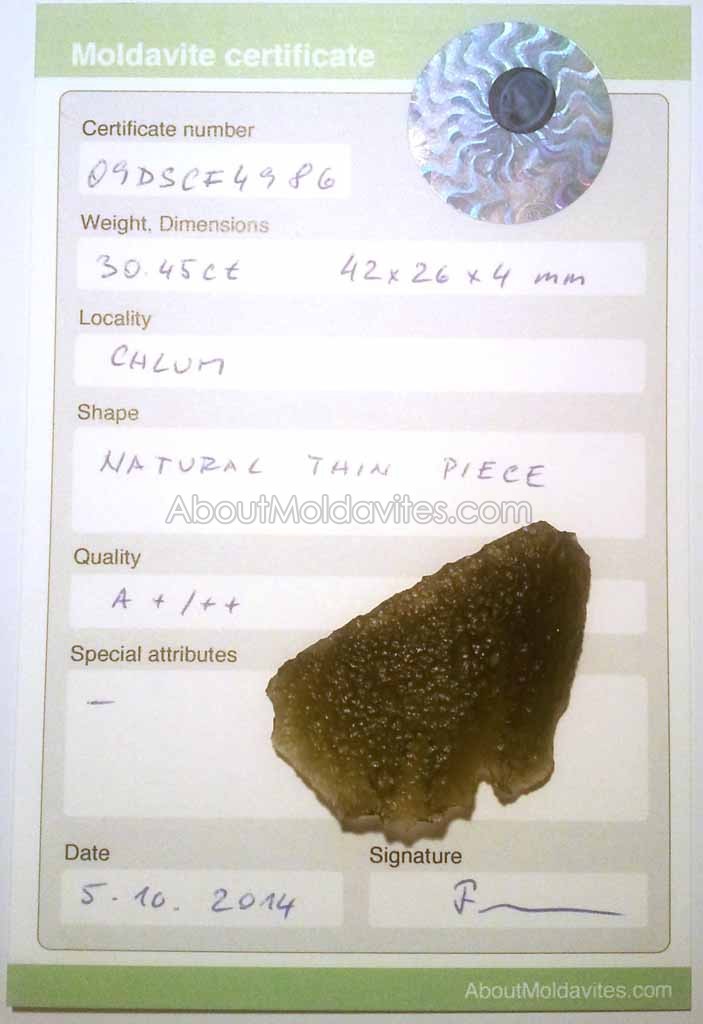 Moldavite certificate
Certificate number
09DSCF4986
Weight, Dimensions
30.45ct 42x26x4 mm
Locality
CHLUM
Shape
NATURAL THIN PIECE
AboutMoldavites.com
Quality
A +/++
Special attributes
–
Date Signature
5.10. 2014
AboutMoldavites.com